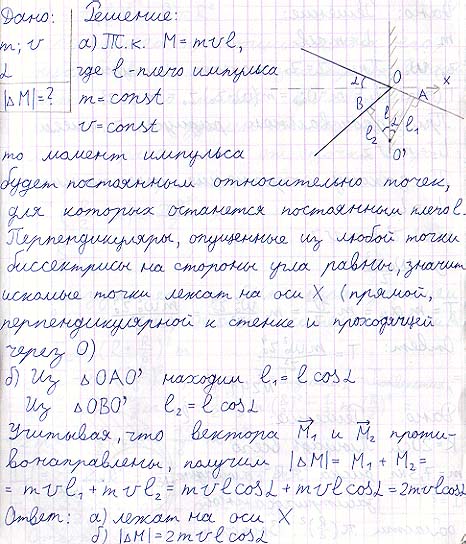 Дано: Решение:
m; v а) Т.к. M = mvl,
α где l - плечо импульса
|ΔM| = ? m = const
v = const
α O x
B A
l
α
l₂ l₁
O'
то момент импульса
будет постоянным относительно точек,
для которых останется постоянным плечо l.
Перпендикуляры, опущенные из любой точки
биссектрисы на стороны угла равны, значит
искомые точки лежат на оси X (прямой,
перпендикулярной к стенке и проходящей
через O)
б) Из △OAO' находим l₁ = l cosα
Из △OBO' l₂ = l cosα
Учитывая, что вектора M⃗₁ и M⃗₂ проти-
вонаправлены, получим |ΔM| = M₁ + M₂ =
= mvl₁ + mvl₂ = mvl cosα + mvl cosα = 2mvl cosα
Ответ: а) лежат на оси X
б) |ΔM| = 2mvl cosα